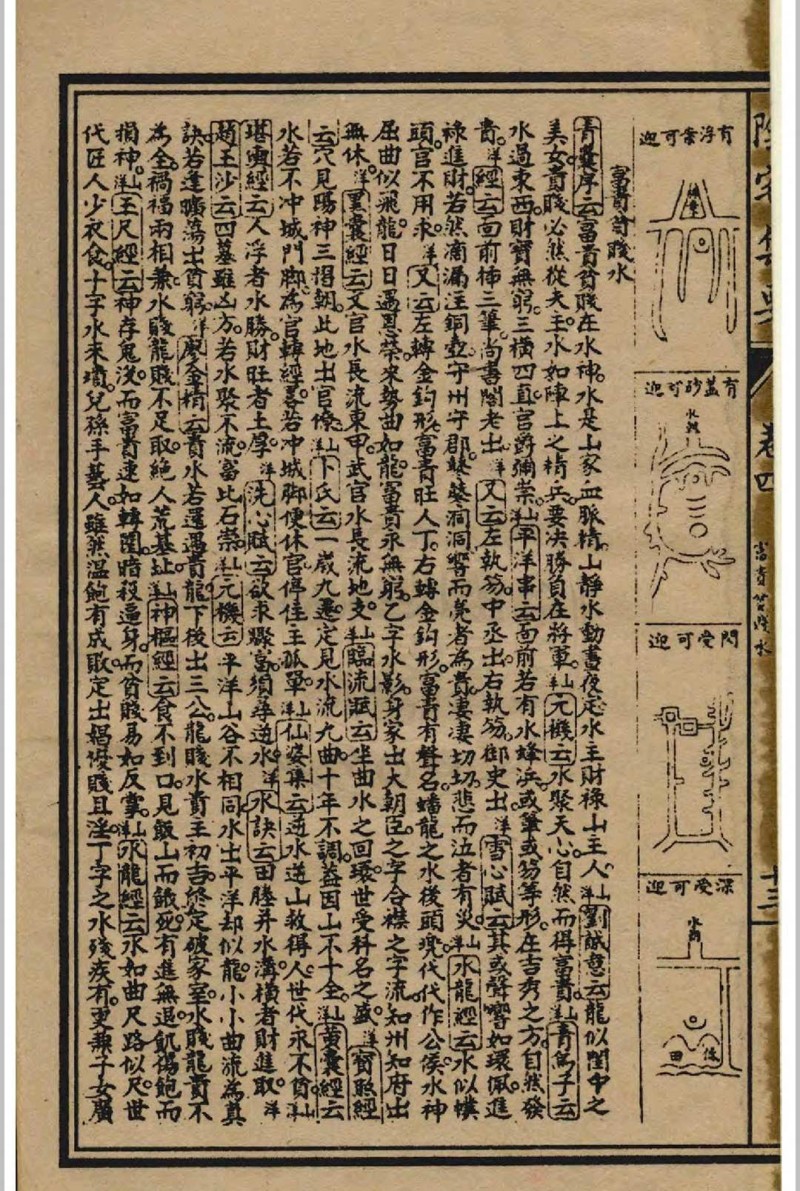 陰宅集要 卷四 富貴貧賤水 十三
有浮案可迎
有蓋砂可迎 水到
閃受可迎
深受可迎 水到 田
富貴貧賤水
青囊序云富貴貧賤在水神水是山家血脈精山靜水動晝夜定水主財祿山主人山洋劉誠意云龍似閨中之
美女貴賤必然從夫主水如陣上之精兵要決勝負在將軍山洋元機云水聚天心自然而得富貴山洋青烏子云
水過東西財寶無窮三橫四直官爵彌崇山洋平洋串云面前若有水蜂浜或筆或笏等形在吉秀之方自然發
貴洋經云面前插三筆尚書閣老出洋又云左執笏中丞出右執笏御史出洋雪心賦云其或聲響如環佩進
祿進財若然滴漏注銅壺守州守郡鼕鼕洞洞響而亮者為貴淒淒切切悲而泣者有災山洋水龍經云水似幞
頭官不用求洋又云左轉金鈎形富貴旺人丁右轉金鈎形富貴有聲名蟠龍之水後頭兜代代作公侯水神
屈曲似飛龍日日遇恩榮來勢曲如龍富貴永無窮乙字水影身家出大朝臣之字合襟之字流知州知府出
無休洋黑囊經云文官水長流東甲武官水長流地支山洋臨流賦云坐曲水之回環世受科名之盛洋寶照經
云穴見陽神三摺朝此地出官僚山洋卜氏云一歲九遷定見水流九曲十年不調蓋因山不十全山洋黃囊經云
水若不冲城門脚為官轉經畧若冲城脚便休官停住主孤單山洋仙婆集云逆水逆山救得人世代永不貧山洋
堪輿經云人浮者水勝財旺者土厚洋洗心賦云欲求驟富須尋逆水洋水訣云田塍井水溝橫者財進取洋
趙玉沙云四墓雖凶方若水聚不流富比石崇山洋元機云平洋山谷不相同水出平洋却似龍小小曲流為真
訣若逢曠蕩出貧窮洋廖金精云貴水若還遇貴龍下後出三公龍賤水貴主初吉終定破家室水賤龍貴不
為全禍福兩相兼水賤龍賤不足取絕人荒基址山洋神樞經云食不到口見飯山而餓死有進無退飢傷飽而
損神山洋玉尺經云神存鬼沒而富貴速如轉圜暗殺逼身而貧賤易如反掌山洋水龍經云水如曲尺路似尺世
代匠人少衣食十字水來墳兒孫手藝人雖然溫飽有成敗定出娼優賤且淫丁字之水殘疾有更兼子女廣